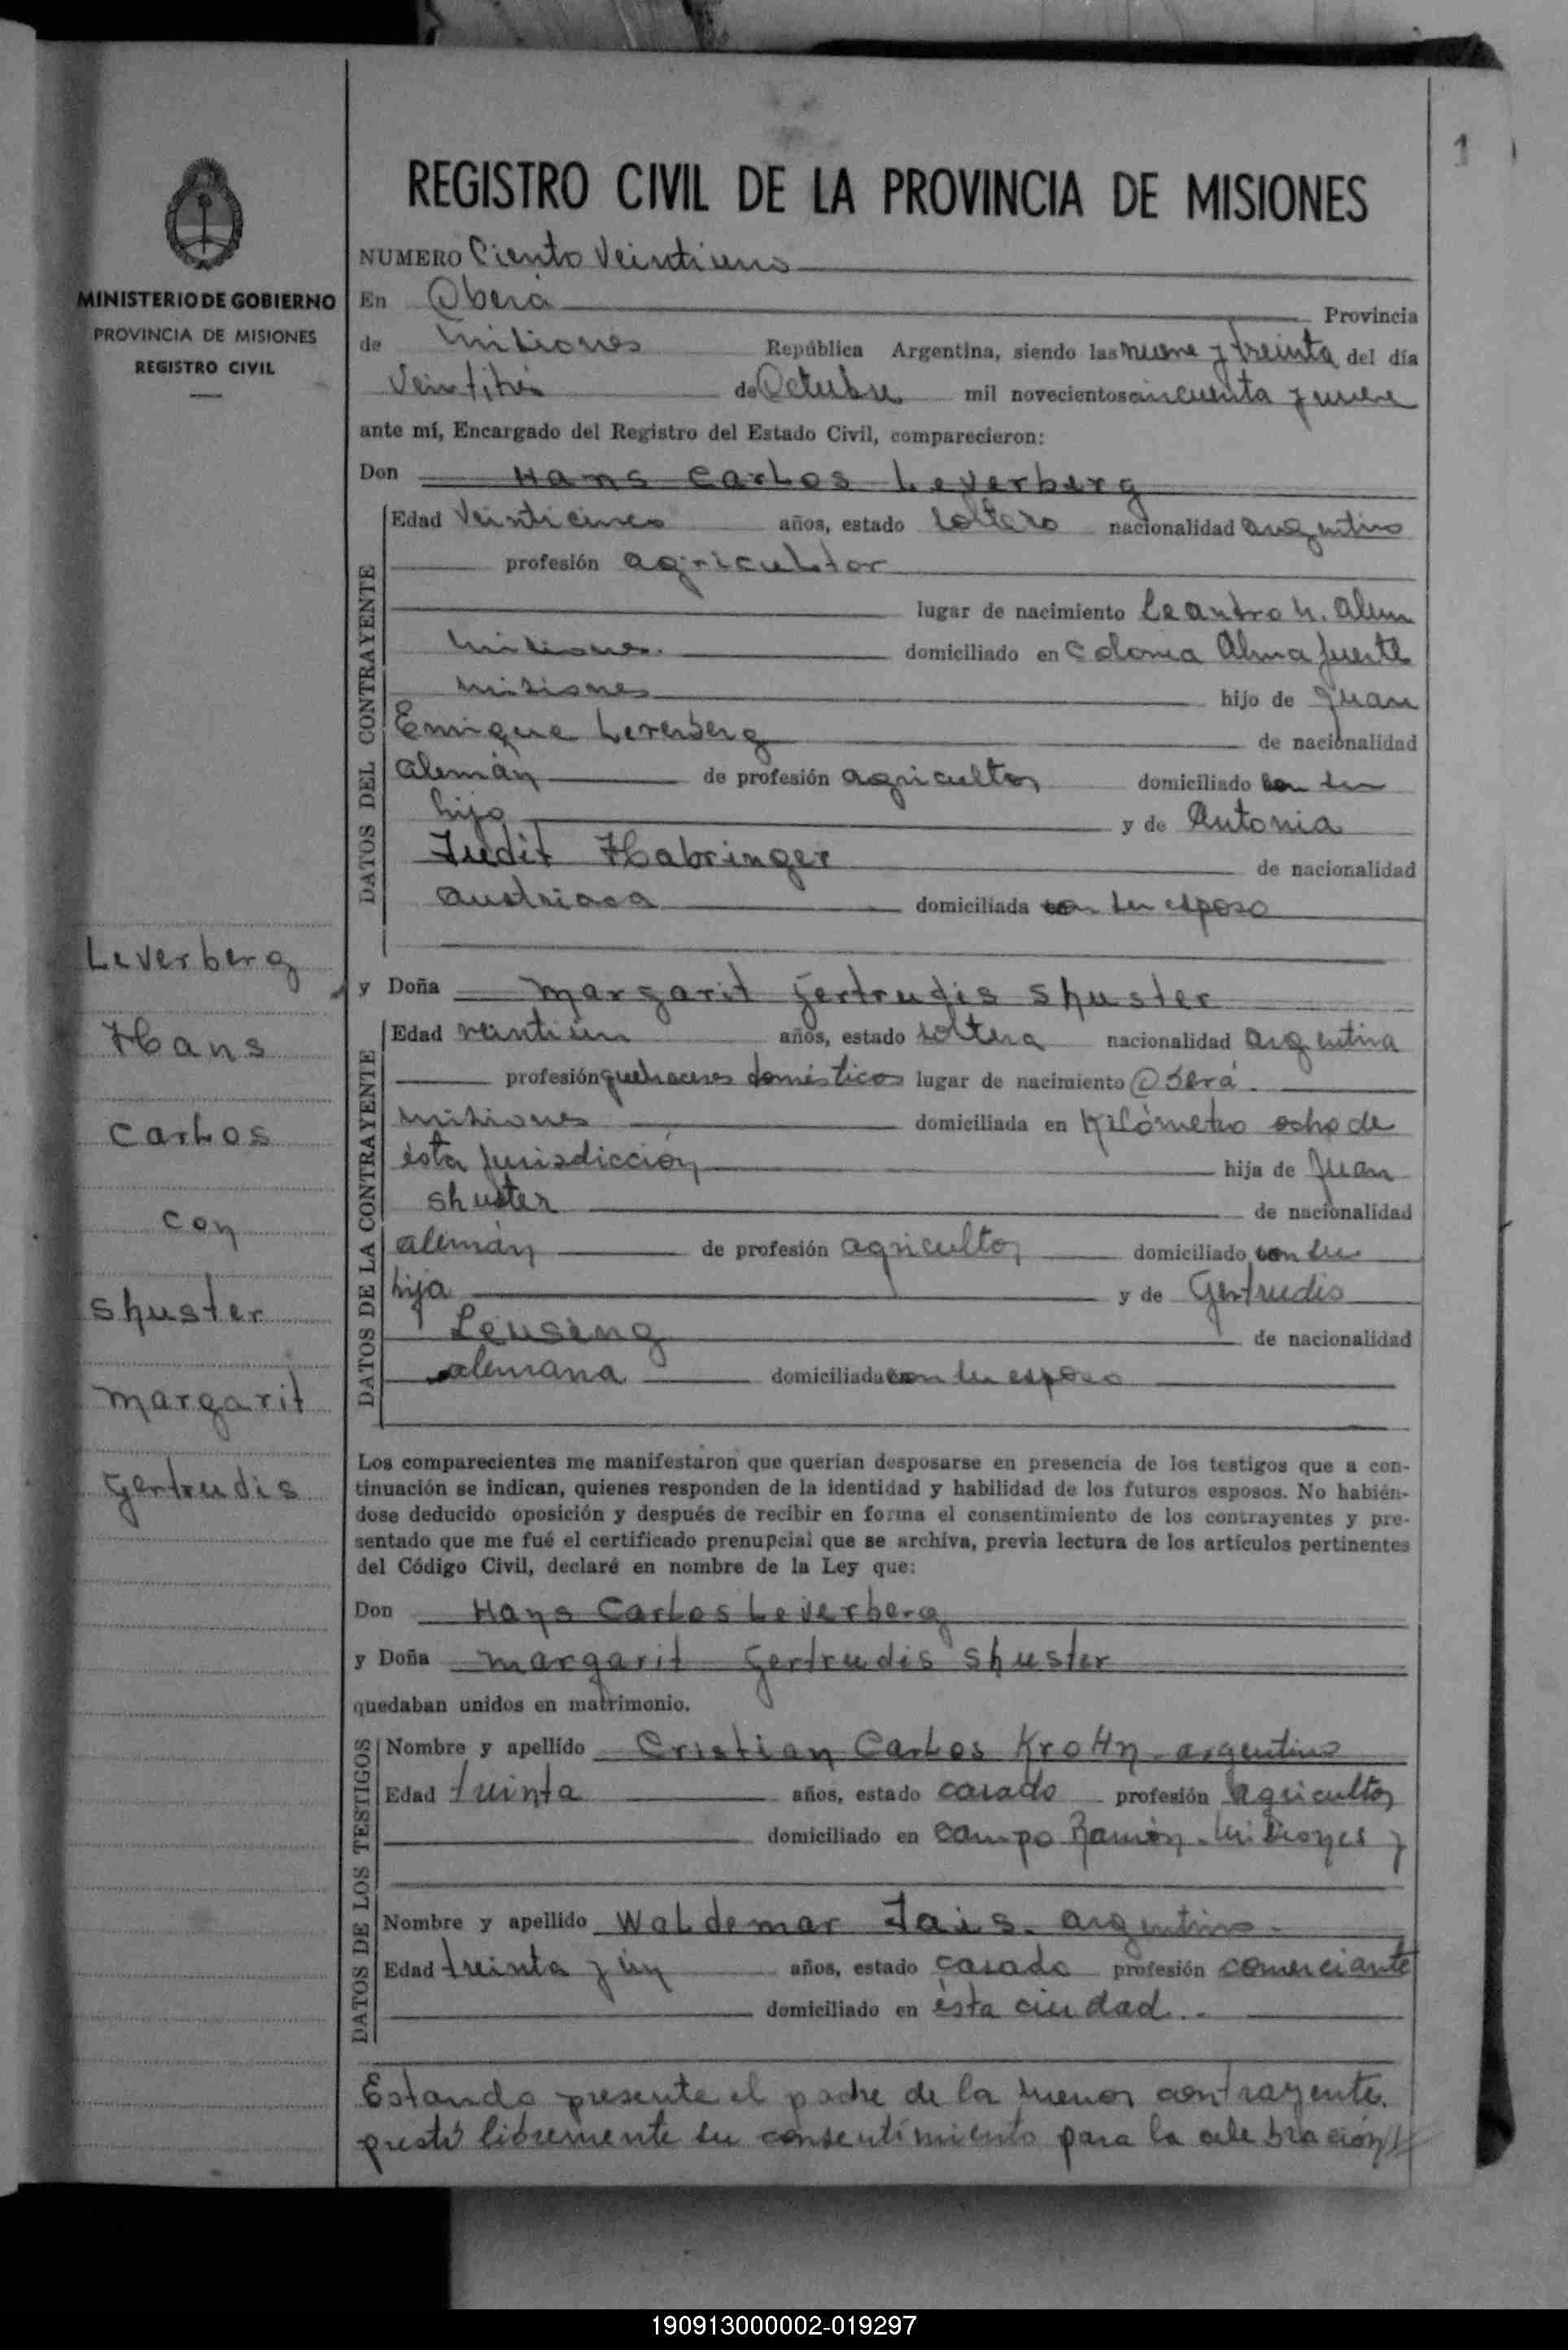 1
REGISTRO CIVIL DE LA PROVINCIA DE MISIONES
MINISTERIO DE GOBIERNO
PROVINCIA DE MISIONES
REGISTRO CIVIL
NUMERO Ciento Veintiuno
En Oberá Provincia
de Misiones República Argentina, siendo las nueve y treinta del día
Veintitrés de Octubre mil novecientos cincuenta y nueve
ante mí, Encargado del Registro del Estado Civil, comparecieron:
Don Hans Carlos Leverberg
DATOS DEL CONTRAYENTE
Edad Veinticinco años, estado soltero nacionalidad argentino
profesión agricultor
lugar de nacimiento Leandro N. Alem
Misiones. domiciliado en Colonia Almafuerte
Misiones hijo de Juan
Enrique Leverberg de nacionalidad
alemán de profesión agricultor domiciliado con su
hijo y de Antonia
Judit Habringer de nacionalidad
austriaca domiciliada con su esposo
y Doña Margarit Gertrudis Shuster
DATOS DE LA CONTRAYENTE
Edad veintiún años, estado soltera nacionalidad argentina
profesión quehaceres domésticos lugar de nacimiento Oberá.
Misiones domiciliada en Kilómetro ocho de
ésta jurisdicción hija de Juan
Shuster de nacionalidad
alemán de profesión agricultor domiciliado con su
hija y de Gertrudis
Leusing de nacionalidad
alemana domiciliada con su esposo
Leverberg
Hans
Carlos
con
Shuster
Margarit
Gertrudis
Los comparecientes me manifestaron que querían desposarse en presencia de los testigos que a con-
tinuación se indican, quienes responden de la identidad y habilidad de los futuros esposos. No habién-
dose deducido oposición y después de recibir en forma el consentimiento de los contrayentes y pre-
sentado que me fué el certificado prenupcial que se archiva, previa lectura de los artículos pertinentes
del Código Civil, declaré en nombre de la Ley que:
Don Hans Carlos Leverberg
y Doña Margarit Gertrudis Shuster
quedaban unidos en matrimonio.
DATOS DE LOS TESTIGOS
Nombre y apellido Cristian Carlos KroHn argentino
Edad treinta años, estado casado profesión agricultor
domiciliado en Campo Ramón. Misiones y
Nombre y apellido Waldemar Jais. argentino.
Edad treinta y un años, estado casado profesión comerciante
domiciliado en ésta ciudad.
Estando presente el padre de la menor contrayente.
prestó libremente su consentimiento para la celebración//
190913000002-019297